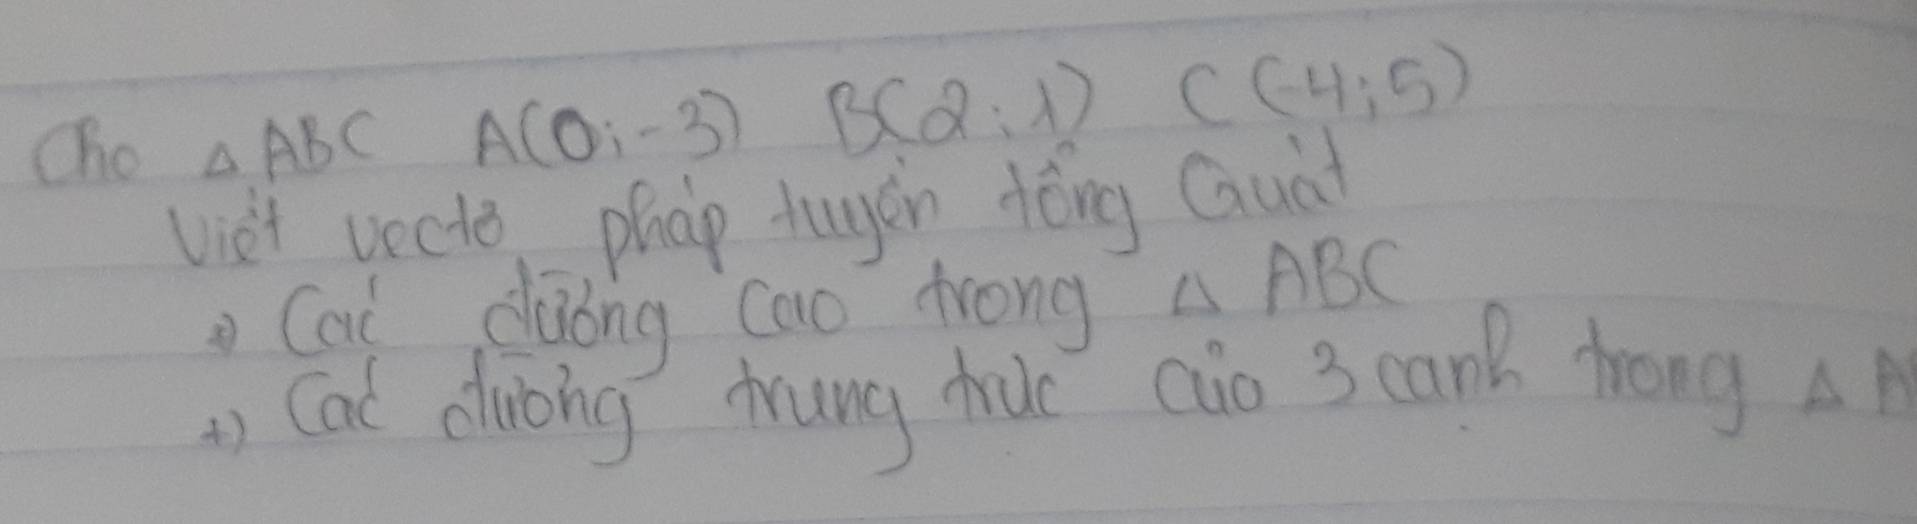 Cho △ ABC A(0;-3) B(2;1) C(-4;5)
Viết vectơ pháp tuyến tổng Quát
+) Các đường cao trong △ ABC
+) Các đường trung trực của 3 cạnh trong △ A